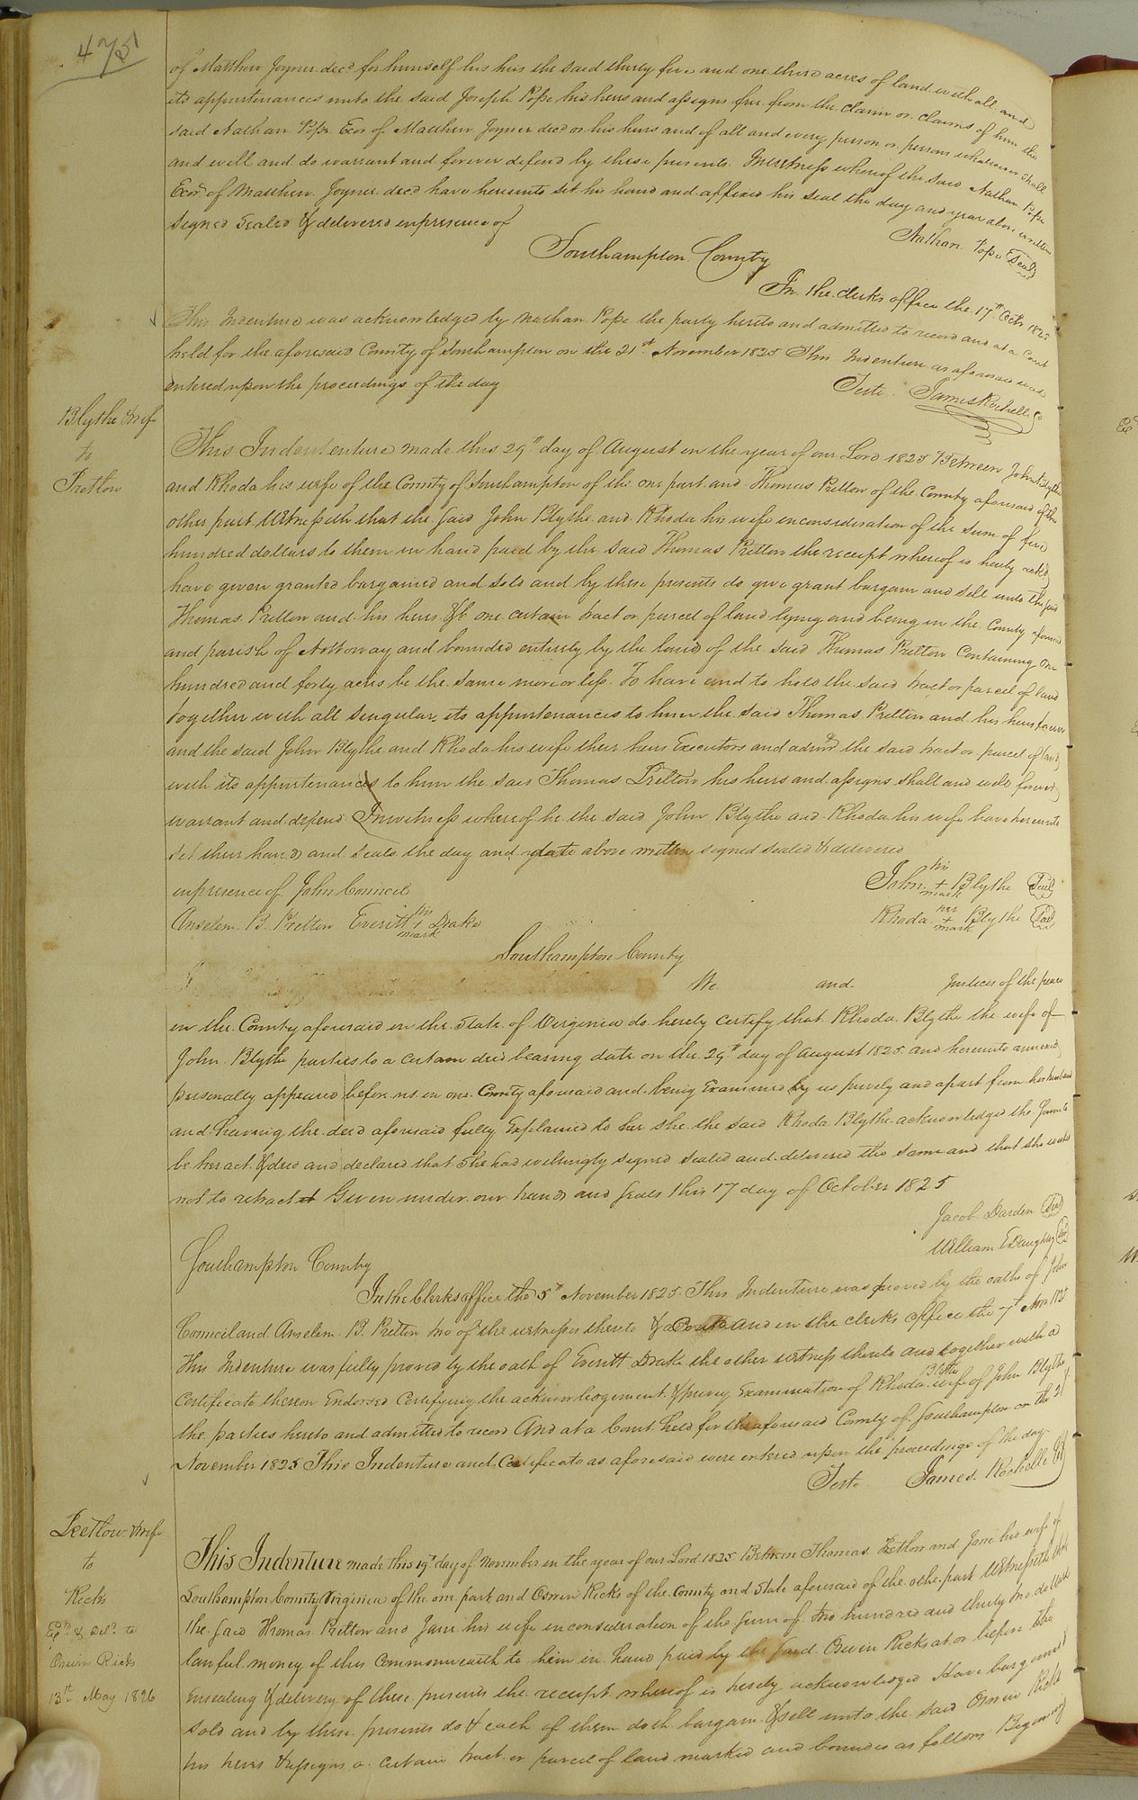 475
of Matthew Joyner decd for himself his heirs the said thirty five and one third acres of land with all and
its appurtenances unto the said Joseph Pope his heirs and assigns free from the claim or claims of him the
said Nathan Pope Exor of Matthew Joyner decd or his heirs and of all and every person or persons whatsoever shall
and will and do warrant and forever defend by these presents. In witness whereof the said Nathan Pope
Exor of Matthew Joyner decd have hereunto set his hand and affixed his seal the day and year above written
signed sealed & delivered in presence of
Nathan Pope Seal
Southampton County
In the clerks office the 17th Octr 1825
This Indenture was acknowledged by Nathan Pope the party hereto and admitted to record and at a Court
held for the aforesaid County of Southampton on the 21st November 1825 This Indenture as aforesaid was
entered upon the proceedings of the day
Teste James Rochelle C
Blythe & wife
to
Pretlow
This Indententure made this 29th day of August in the year of our Lord 1825 Between John Blythe
and Rhoda his wife of the County of Southampton of the one part and Thomas Pretlow of the County aforesaid of the
other part Witnesseth that the said John Blythe and Rhoda his wife in consideration of the sum of five
hundred dollars to them in hand paid by the said Thomas Pretlow the receipt whereof is hereby ackd
have given granted bargained and sold and by these presents do give grant bargain and sell unto the said
Thomas Pretlow and his heirs &c one certain tract or parcel of land lying and being in the County aforesaid
and parish of Nottoway and bounded entirely by the land of the said Thomas Pretlow Containing one
hundred and forty acres be the same more or less. To have and to hold the said tract or parcel of land
together with all singular its appurtenances to him the said Thomas Pretlow and his heirs forever
and the said John Blythe and Rhoda his wife their heirs Executors and admrs the said tract or parcel of land
with its appurtenances to him the said Thomas Pretlow his heirs and assigns shall and will forever
warrant and defend In witness whereof he the said John Blythe and Rhoda his wife have hereunto
set their hands and seals the day and date above written signed sealed & delivered
in presence of John Council
John his + mark Blythe Seal
Anselm B. Pretlow Everitt his + mark Drake
Rhoda her + mark Blythe Seal
Southampton County
We and Justices of the peace
in the County aforesaid in the State of Virginia do hereby certify that Rhoda Blythe the wife of
John Blythe parties to a certain deed bearing date on the 29th day of August 1825 and hereunto annexed
personally appeared before us in our County aforesaid and being Examined by us privily and apart from her husband
and having the deed aforesaid fully Explained to her she the said Rhoda Blythe acknowledged the same to
be her act & deed and declared that She had willingly signed sealed and delivered the same and that she wished
not to retract it Given under our hands and seals this 17 day of October 1825
Jacob Darden Seal
William E Daughtry Seal
Southampton County
In the Clerks office the 5th November 1825. This Indenture was proved by the oaths of John
Council and Anselm B. Pretlow two of the witnesses thereto & a and in the clerks office the 7th Novr 1825
This Indenture was fully proved by the oath of Everitt Drake the other witness thereto and together with a
Certificate thereon Endorsed Certifying the acknowledgement & privy Examination of Rhoda Blythe wife of John Blythe
the parties hereto and admitted to record And at a Court held for the aforesaid County of Southampton on the 21
November 1825 This Indenture and Certificate as aforesaid were entered upon the proceedings of the day
Teste James Rochelle C
Pretlow & wife
to
Ricks
Exd & Deld to
Oswin Ricks
13th May 1826
This Indenture made this 19th day of November in the year of our Lord 1825 Between Thomas Pretlow and Jane his wife of
Southampton County Virginia of the one part and Oswin Ricks of the County and State aforesaid of the other part Witnesseth that
the said Thomas Pretlow and Jane his wife in consideration of the sum of two hundred and thirty two dollars
lawful money of this Commonwealth to him in hand paid by the said Oswin Ricks at or before the
ensealing & delivery of these presents the receipt whereof is hereby acknowledged Have bargained
sold and by these presents do & each of them doth bargain & sell unto the said Oswin Ricks
his heirs & assigns a certain tract or parcel of land marked and bounded as follows Beginning